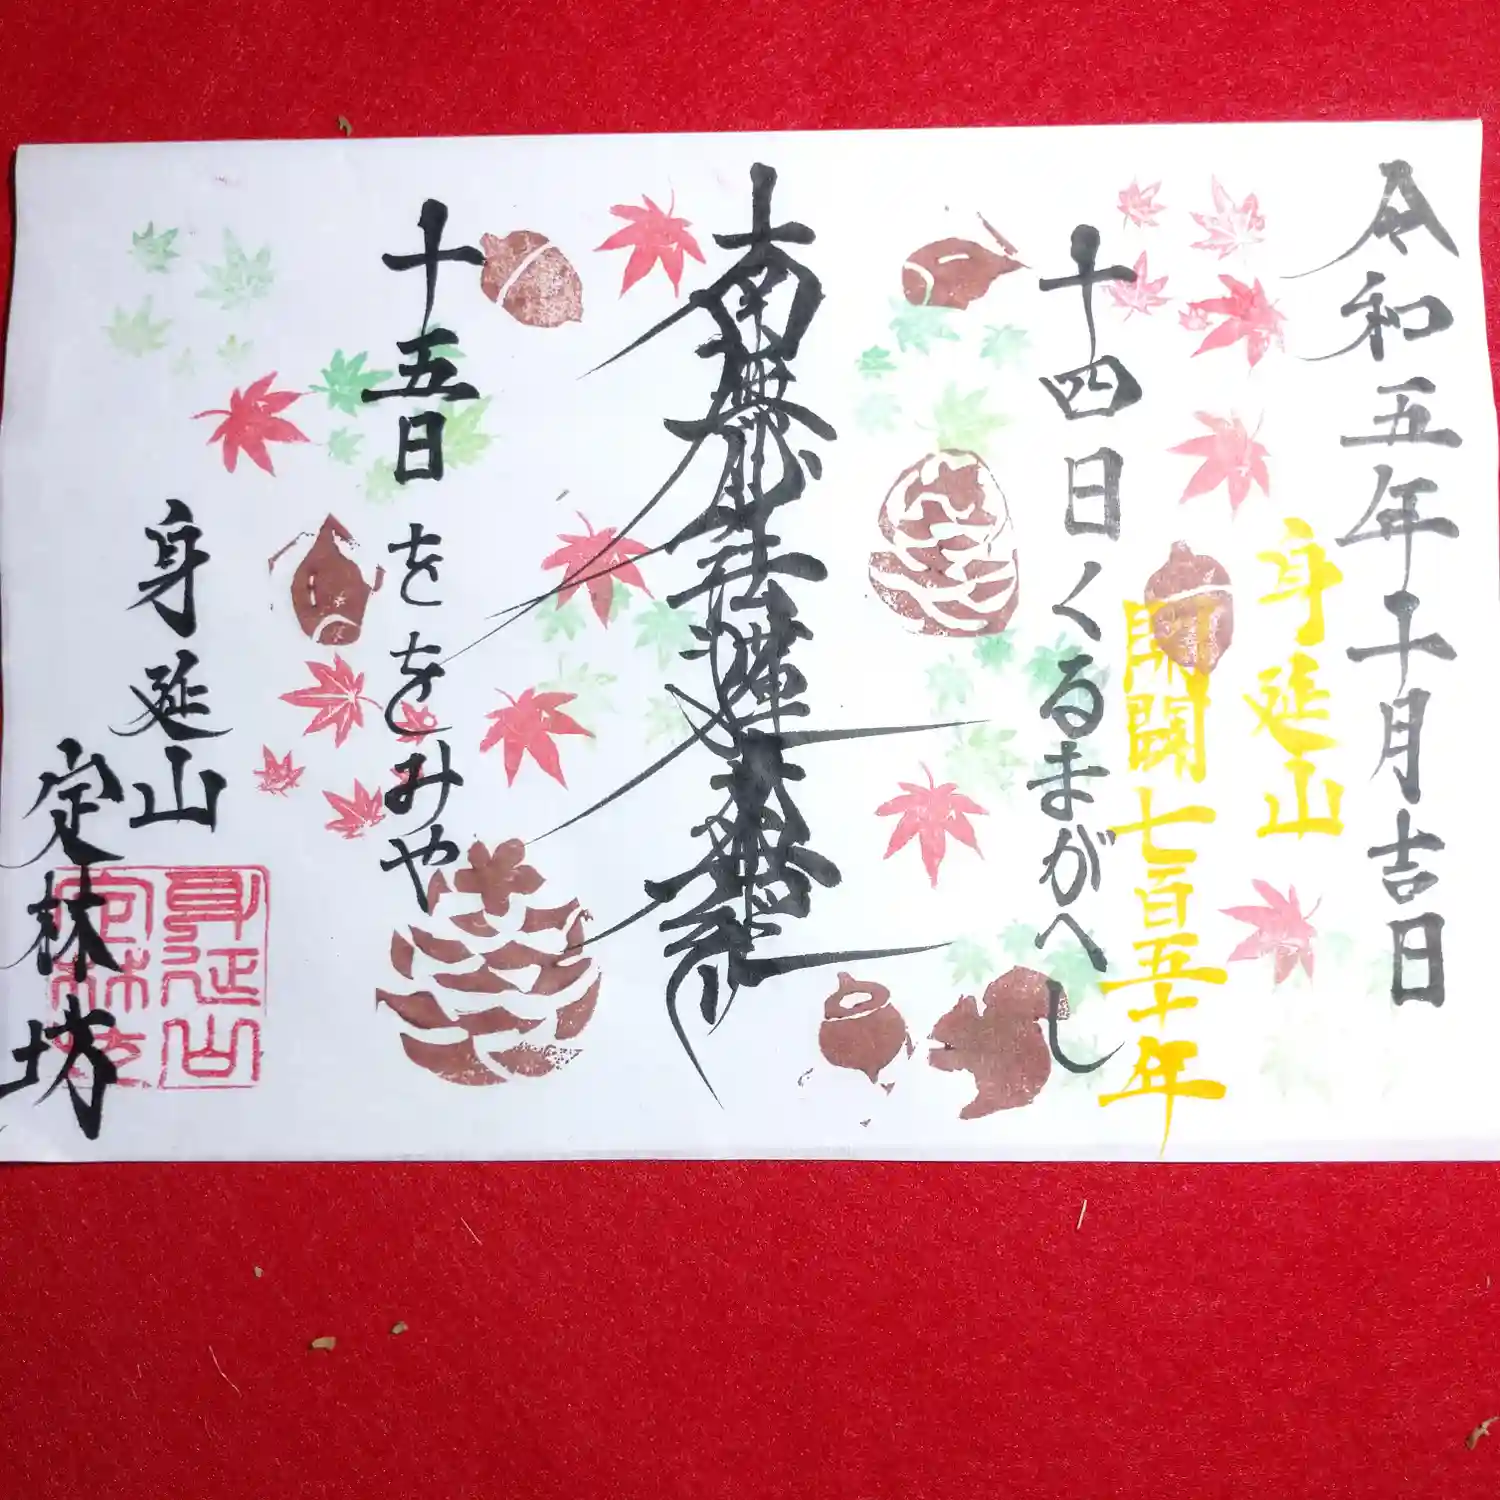 令和五年十月吉日
身延山
開闢七百五十年
十四日くるまがへし
南無妙法蓮華経
十五日ををみや
身延山
定林坊
身延山
定林坊